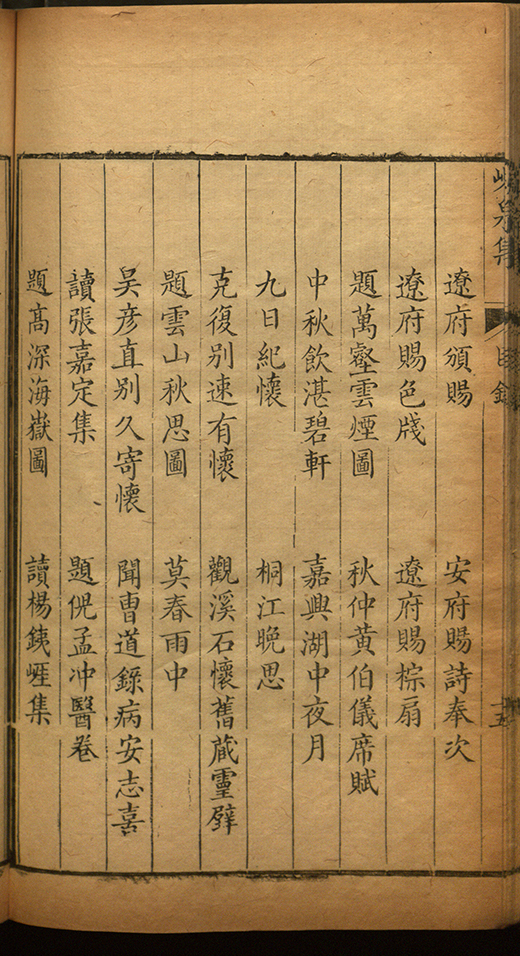 峴泉集
目錄
遼府頒賜　安府賜詩奉次
遼府賜色牋　遼府賜棕扇
題萬壑雲煙圖　秋仲黃伯儀席賦
中秋飲湛碧軒　嘉興湖中夜月
九日紀懷　桐江晚思
克復别速有懷　觀溪石懷舊藏靈璧
題雲山秋思圖　莫春雨中
吴彦直别久寄懷　聞曹道錄病安志喜
讀張嘉定集　題倪孟冲醫卷
題高深海嶽圖　讀楊銕崕集